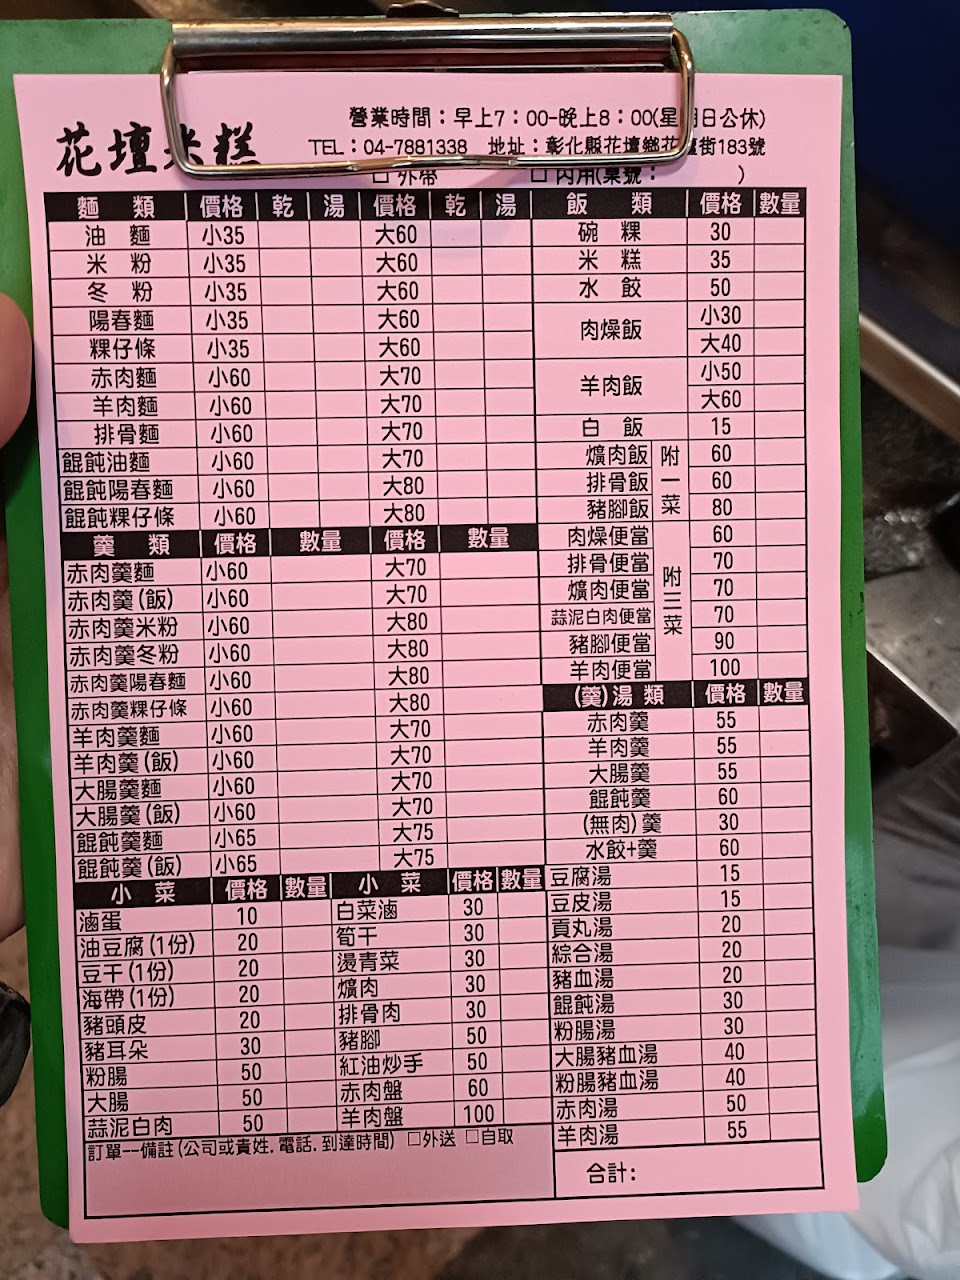 花壇米糕
營業時間：早上7：00-晚上8：00(星期日公休)
TEL：04-7881338 地址：彰化縣花壇鄉花壇街183號
□ 外帶 □ 內用(桌號： )
麵 類 價格 乾 湯 價格 乾 湯
油 麵 小35 大60
米 粉 小35 大60
冬 粉 小35 大60
陽春麵 小35 大60
粿仔條 小35 大60
赤肉麵 小60 大70
羊肉麵 小60 大70
排骨麵 小60 大70
餛飩油麵 小60 大70
餛飩陽春麵 小60 大80
餛飩粿仔條 小60 大80
羹 類 價格 數量 價格 數量
赤肉羹麵 小60 大70
赤肉羹(飯) 小60 大70
赤肉羹米粉 小60 大80
赤肉羹冬粉 小60 大80
赤肉羹陽春麵 小60 大80
赤肉羹粿仔條 小60 大80
羊肉羹麵 小60 大70
羊肉羹(飯) 小60 大70
大腸羹麵 小60 大70
大腸羹(飯) 小60 大70
餛飩羹麵 小65 大75
餛飩羹(飯) 小65 大75
小 菜 價格 數量 小 菜 價格 數量
滷蛋 10 白菜滷 30
油豆腐(1份) 20 筍干 30
豆干(1份) 20 燙青菜 30
海帶(1份) 20 爌肉 30
豬頭皮 20 排骨肉 30
豬耳朵 30 豬腳 50
粉腸 50 紅油炒手 50
大腸 50 赤肉盤 60
蒜泥白肉 50 羊肉盤 100
訂單--備註(公司或貴姓.電話.到達時間) □外送 □自取
飯 類 價格 數量
碗 粿 30
米 糕 35
水 餃 50
肉燥飯 小30
大40
羊肉飯 小50
大60
白 飯 15
爌肉飯 附一菜 60
排骨飯 60
豬腳飯 80
肉燥便當 附三菜 60
排骨便當 70
爌肉便當 70
蒜泥白肉便當 70
豬腳便當 90
羊肉便當 100
(羹)湯 類 價格 數量
赤肉羹 55
羊肉羹 55
大腸羹 55
餛飩羹 60
(無肉)羹 30
水餃+羹 60
豆腐湯 15
豆皮湯 15
貢丸湯 20
綜合湯 20
豬血湯 20
餛飩湯 30
粉腸湯 30
大腸豬血湯 40
粉腸豬血湯 40
赤肉湯 50
羊肉湯 55
合計：